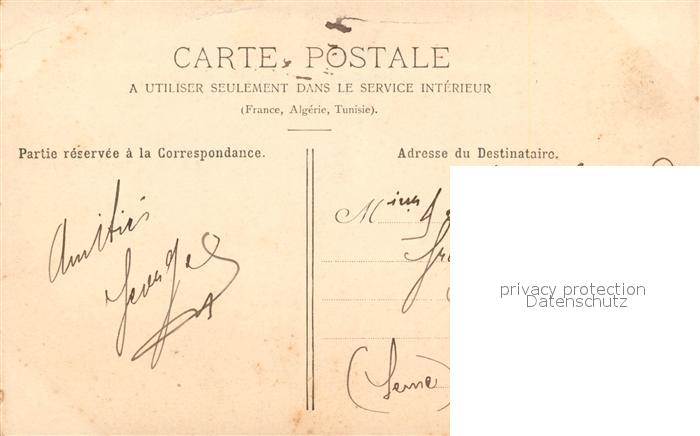 CARTE POSTALE
A UTILISER SEULEMENT DANS LE SERVICE INTÉRIEUR
(France, Algérie, Tunisie).
Partie réservée à la Correspondance.
Adresse du Destinataire.
Amitiés
privacy protection
Datenschutz